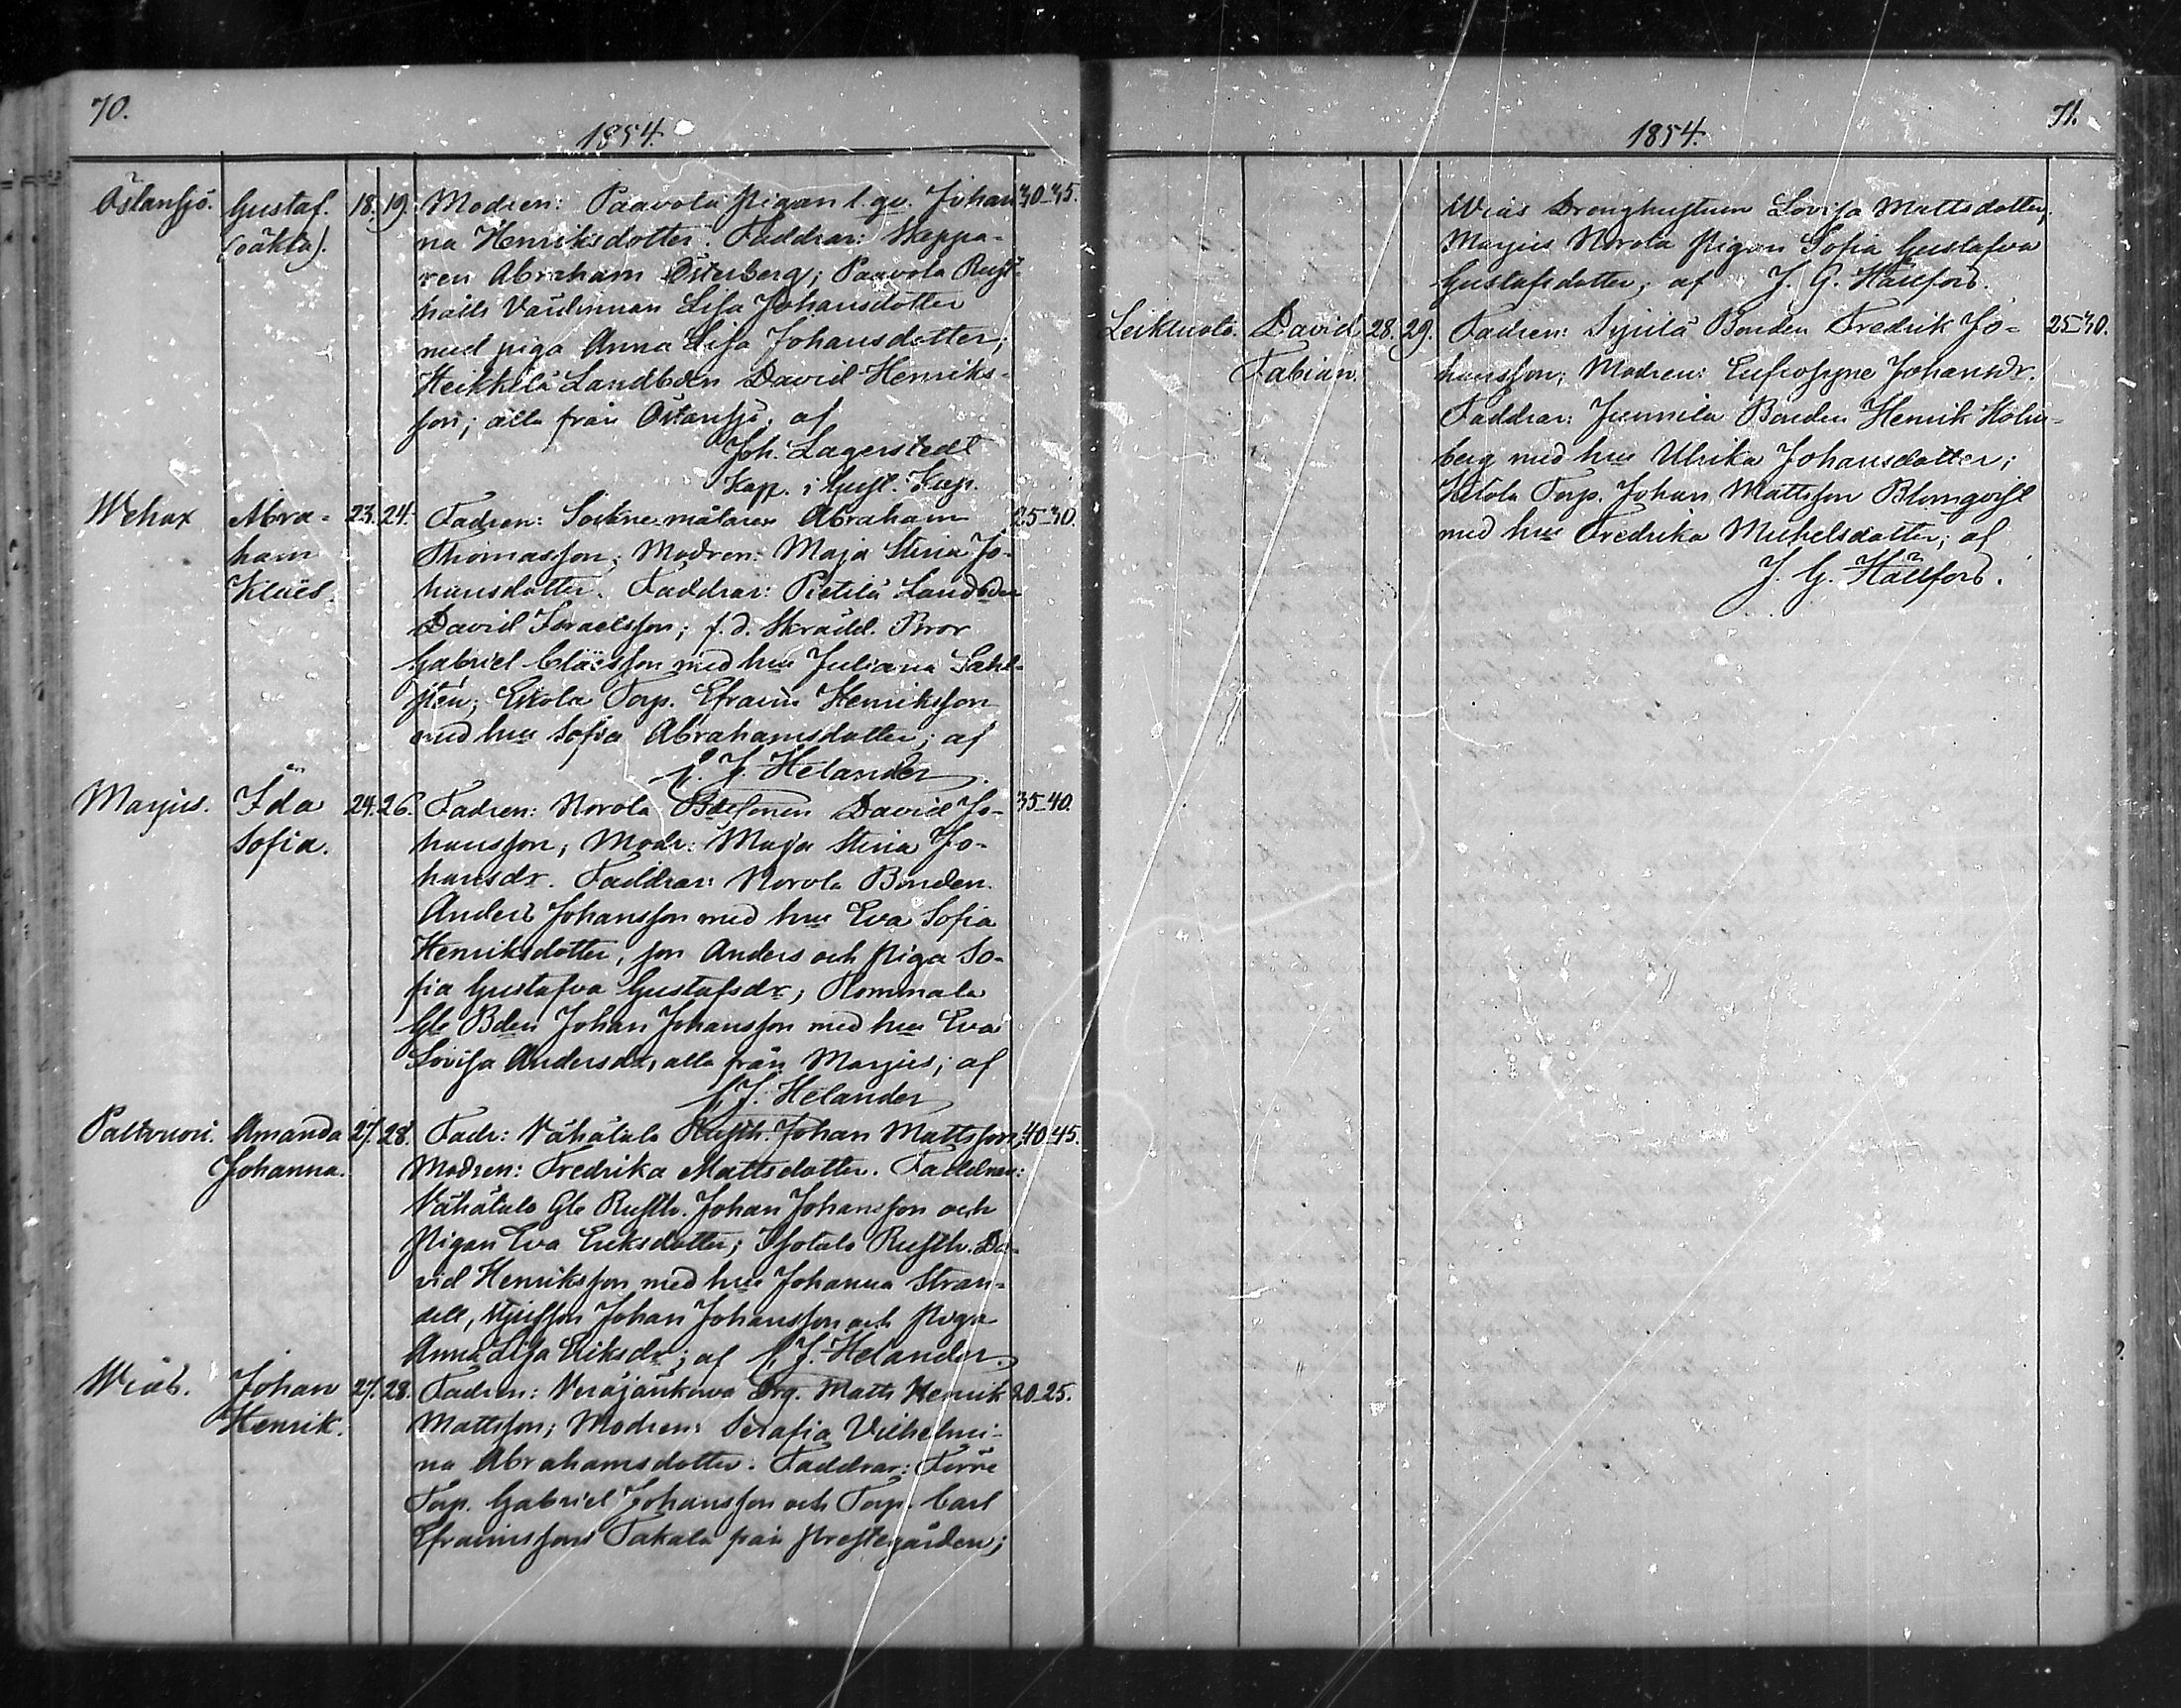 70.
1854.
Östansjö. Gustaf. 18. 19. Modren: Paavola Pigan l. qv. Johan- 30-35.
(oäkta). na Henriksdotter. Faddrar: Skeppa-
ren Abraham Österberg; Paavola Rust-
hålls Värdinnan Lisa Johansdotter
med piga Anna Lisa Johansdotter;
Heikkilä Landboden David Henriks-
son; alla från Östansjö; af
Joh. Lagerstedt
Kap. i Gust. Kap.
Wehax Abra- 23. 24. Fadren: Sockne målaren Abraham 25-30.
ham Thomasson; Modren: Maja Stina Jo-
Klaës. hansdotter. Faddrar: Pietilä Landboden
David Israelsson; f.d. Skrädd. Bror
Gabriel Claësson med hu Juliana Sahl-
stén; Eskola Torp. Efraim Henriksson
med hu Sofia Abrahamsdotter; af
J. Helander.
Marjus. Ida 24. 26. Fadren: Norola Bdesonen David Jo- 35-40.
Sofia. hansson; Modr: Maja Stina Jo-
hansdr. Faddrar: Norola Bonden
Anders Johansson med hu Eva Sofia
Henriksdotter, son Anders och Piga So-
fia Gustafva Gustafsdr; Rommala
Gle Bden Johan Johansson med hu Eva
Lovisa Andersdr, alla från Marjus; af
J. Helander
Paltvuori. Amanda 27. 28. Fadr: Vähätalo Rusth. Johan Mattsson; 40-45.
Johanna. Modren: Fredrika Mattsdotter. Faddrar:
Vähätalo Gle Rusth. Johan Johansson och
Pigan Eva Eriksdotter; Isotalo Rusth. Da-
vid Henriksson med hu Johanna Stran-
dell, Styfson Johan Johansson och Piga
Anna Lisa Eriksdr; af J. Helander.
Wiäs. Johan 27. 28. Fadren: Veräjänkorva Drg. Matts Henrik 20-25.
Henrik. Mattsson; Modren: Serafia Vilhelmi-
na Abrahamsdotter. Faddrar: Förre
Torp. Gabriel Johansson och Torp. Carl
Efraimsson Takala från Prestegården;
71.
1854.
Wiäs Dronghustrun Lovisa Mattsdotter,
Marjus Norola Pigan Sofia Gustafva
Gustafsdotter; af J. G. Hällfors.
Leikluoto. David 28. 29. Fadren: Sysilä Bonden Fredrik Jo- 25-30.
Fabian. hansson; Modren: Eufrosyne Johansdr.
Faddrar: Junnila Bonden Henrik Holm-
berg med hu Ulrika Johansdotter;
Torp. Johan Mattsson Blomqvist
med hu Fredrika Michelsdotter; af
J. G. Hällfors.